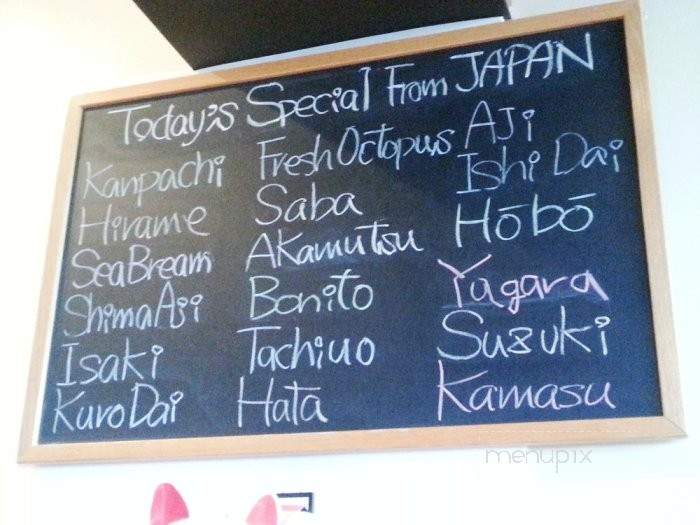 Today's Special From JAPAN
Kanpachi
Hirame
SeaBream
ShimaAji
Isaki
KuroDai
Fresh Octopus
Saba
AKamutsu
Bonito
Tachiuo
Hata
AJi
Ishi Dai
Hōbō
Yagara
Suzuki
Kamasu
menupix